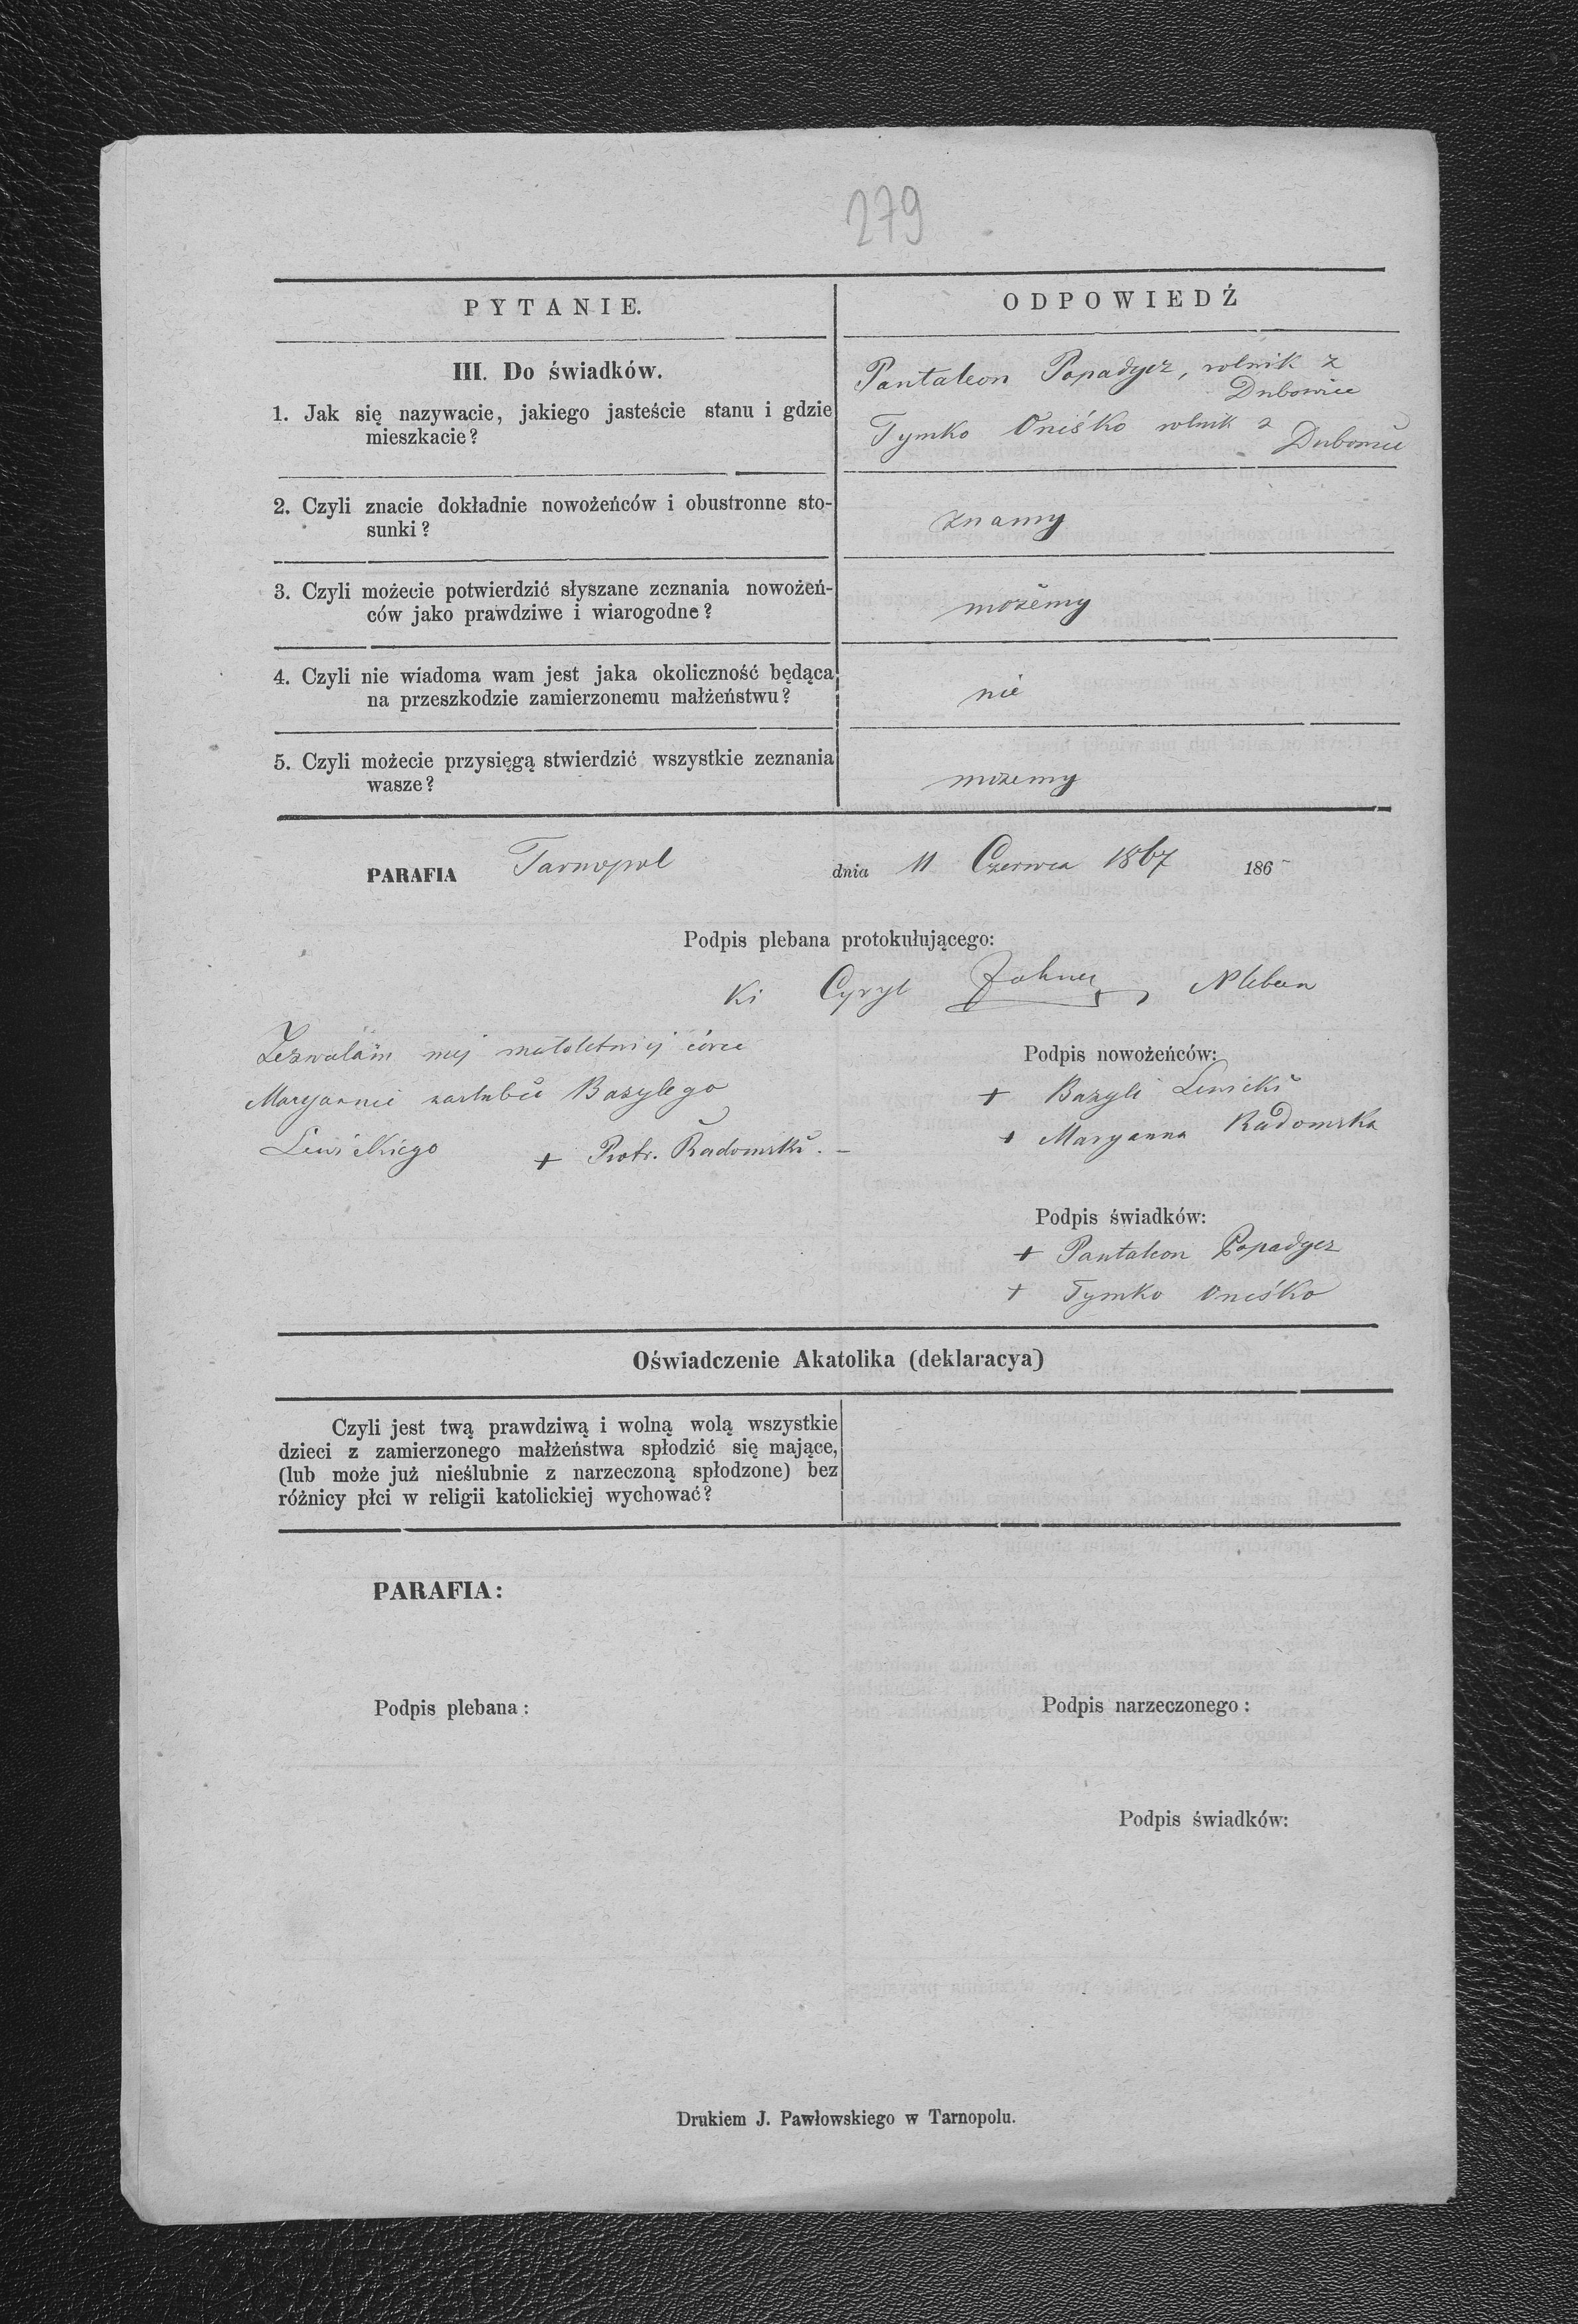 279
PYTANIE.
ODPOWIEDŹ
III. Do świadków.
1. Jak się nazywacie, jakiego jasteście stanu i gdzie
mieszkacie?
Pantaleon Popadycz, rolnik z
Dubowiec
Tymko Oniśko rolnik z
Dubowiec
2. Czyli znacie dokładnie nowożeńców i obustronne sto-
sunki?
znamy
3. Czyli możecie potwierdzić słyszane zeznania nowożeń-
ców jako prawdziwe i wiarogodne?
możemy
4. Czyli nie wiadoma wam jest jaka okoliczność będąca
na przeszkodzie zamierzonemu małżeństwu?
nie
5. Czyli możecie przysięgą stwierdzić wszystkie zeznania
wasze?
możemy
PARAFIA Tarnopol dnia 11 Czerwca 1867 186
Podpis plebana protokułującego:
Cyryl Pleban
Zezwalam mej małoletniej córce
Maryannie zaslubić Bazylego
Lewickiego + Piotr. Radomski. –
Podpis nowożeńców:
+ Bazyli Lewicki
+ Maryanna Radomska
Podpis świadków:
+ Pantaleon Popadycz
+ Tymko Oniśko
Oświadczenie Akatolika (deklaracya)
Czyli jest twą prawdziwą i wolną wolą wszystkie
dzieci z zamierzonego małżeństwa spłodzić się mające,
(lub może już nieślubnie z narzeczoną spłodzone) bez
różnicy płci w religii katolickiej wychować?
PARAFIA:
Podpis plebana:
Podpis narzeczonego:
Podpis świadków:
Drukiem J. Pawłowskiego w Tarnopolu.